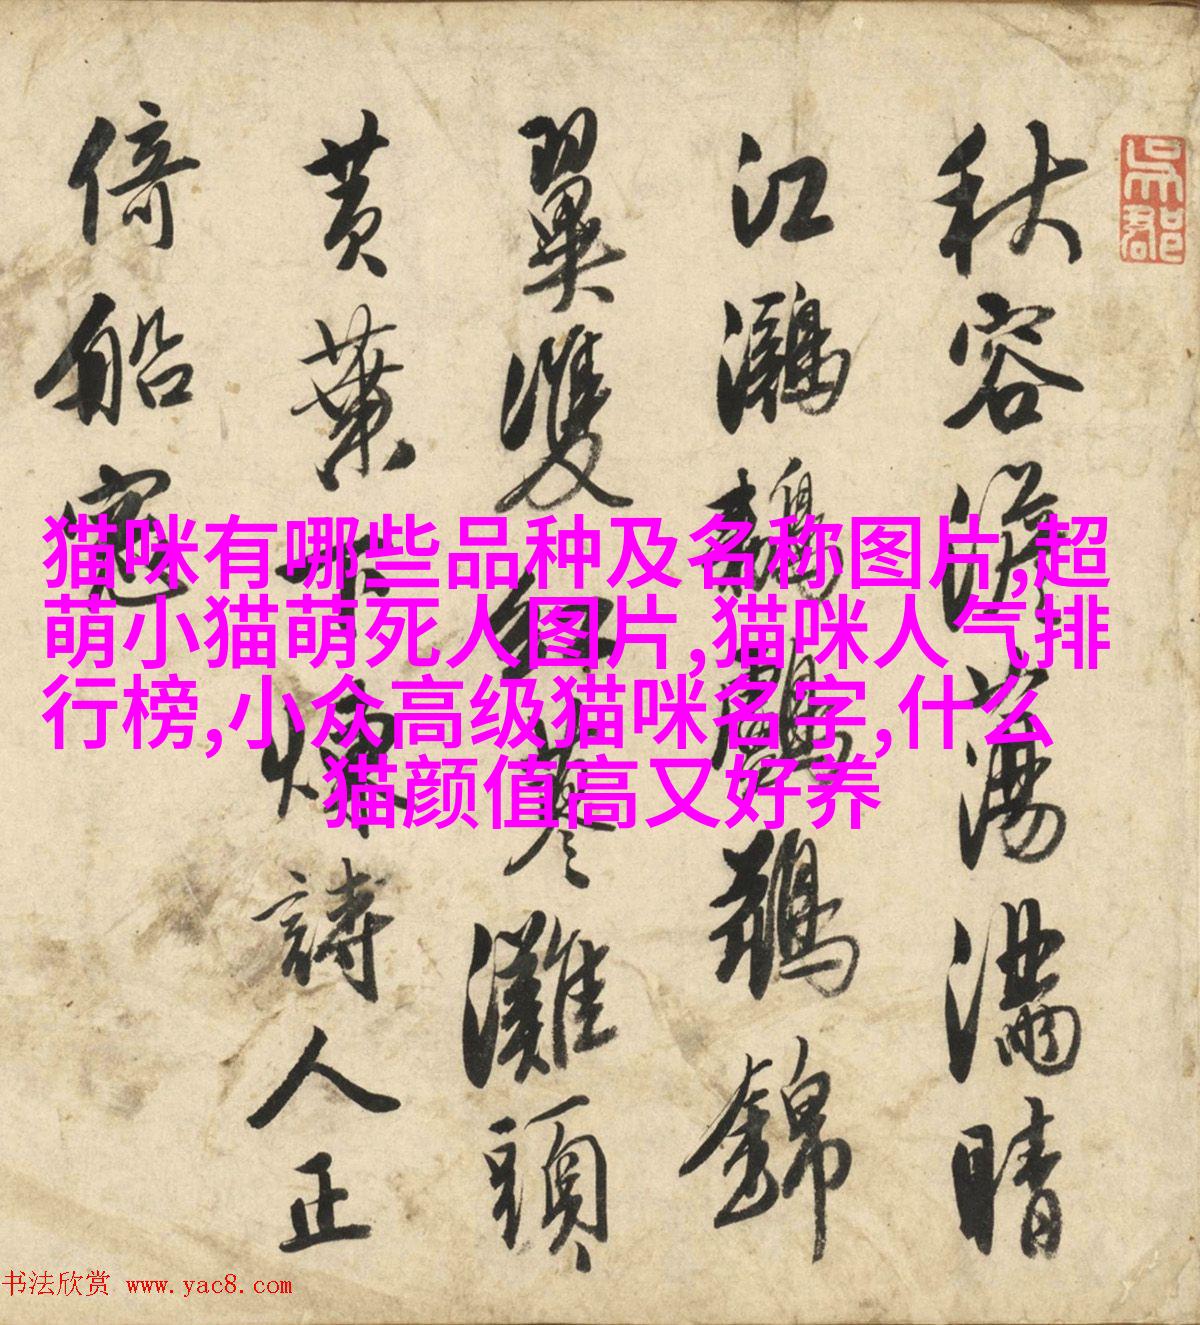 吳郡
秋容澹蕩滿晴
江鸂鶒錦
翼雙紅蓼灘頭
黄葉下詩人正
倚船窓
猫咪有哪些品种及名称图片,超
萌小猫萌死人图片,猫咪人气排
行榜,小众高级猫咪名字,什么
猫颜值高又好养
书法欣赏 www.yac8.com